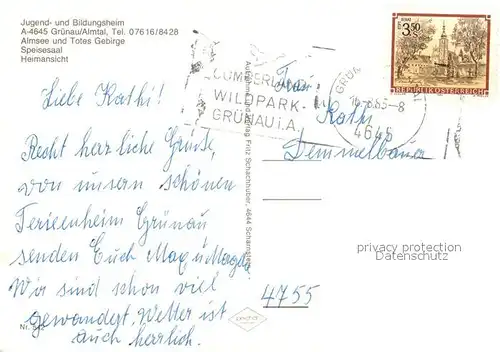 Jugend- und Bildungsheim
A-4645 Grünau/Almtal, Tel. 07616/8428
Almsee und Totes Gebirge
Speisesaal
Heimansicht
Liebe Kathi!
Recht herzliche Grüße,
von unsern schönen
Ferienheim Grünau
senden Euch Max u Magda
Wir sind schon viel
gewandert. Wetter ist
auch herrlich.
Nr. 542
Aufnahme und Verlag Fritz Schachhuber, 4644 Scharnstein
CUMBERLAND
WILDPARK
GRÜNAU i.A.
GRÜNAU
-8
4645
S 3.50
REPUBLIK ÖSTERREICH
Frau
Kathi
Demmelbauer
4755
privacy protection
Datenschutz